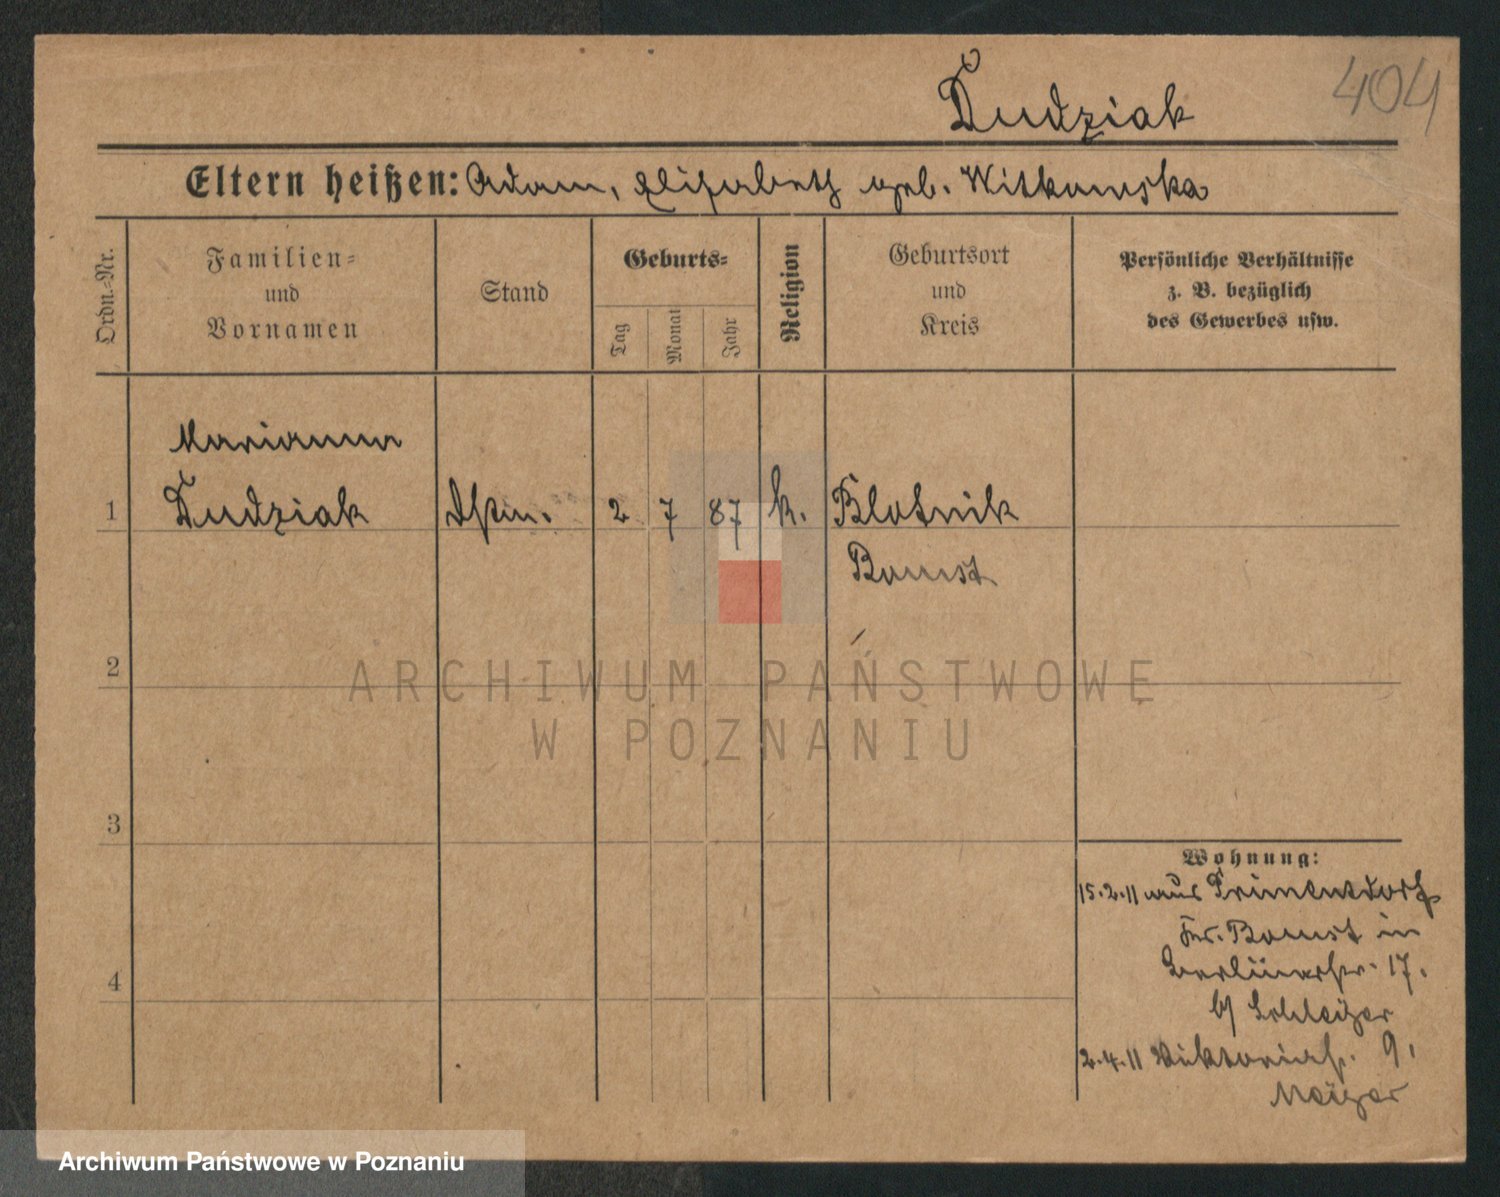 404
Dudziak
Eltern heißen: Adam, Elisabeth geb. Witkowska
Ordn.-Nr.
Familien-
und
Vornamen
Stand
Geburts-
Tag
Monat
Jahr
Religion
Geburtsort
und
Kreis
Persönliche Verhältnisse
z. B. bezüglich
des Gewerbes usw.
Marianna
1 Dudziak 2 7 87 k. Blotnik
Bomst
2
3
4
Wohnung:
15.2.11 aus Primentdorf
Kr. Bomst in
Berlinerstr. 17.
b/
2.4.11 Viktoriastr. 9.
ARCHIWUM PAŃSTWOWE
W POZNANIU
Archiwum Państwowe w Poznaniu